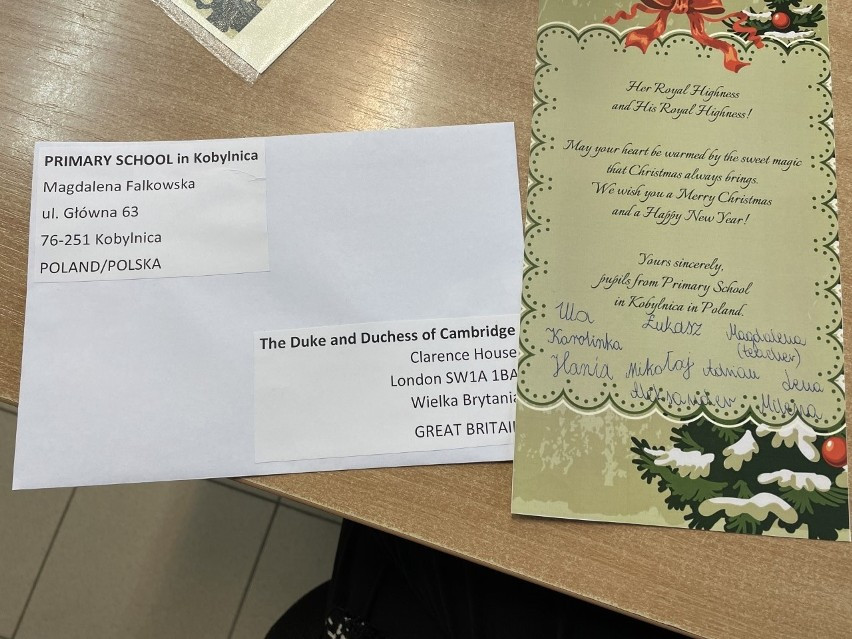 PRIMARY SCHOOL in Kobylnica
Magdalena Falkowska
ul. Główna 63
76-251 Kobylnica
POLAND/POLSKA
The Duke and Duchess of Cambridge
Clarence House
London SW1A 1BA
Wielka Brytania
GREAT BRITAIN
Her Royal Highness
and His Royal Highness!
May your heart be warmed by the sweet magic
that Christmas always brings.
We wish you a Merry Christmas
and a Happy New Year!
Yours sincerely,
pupils from Primary School
in Kobylnica in Poland.
Ula Łukasz Magdalena
Karolinka (teacher)
Hania Mikołaj Adrian Lena
Aleksander Milena